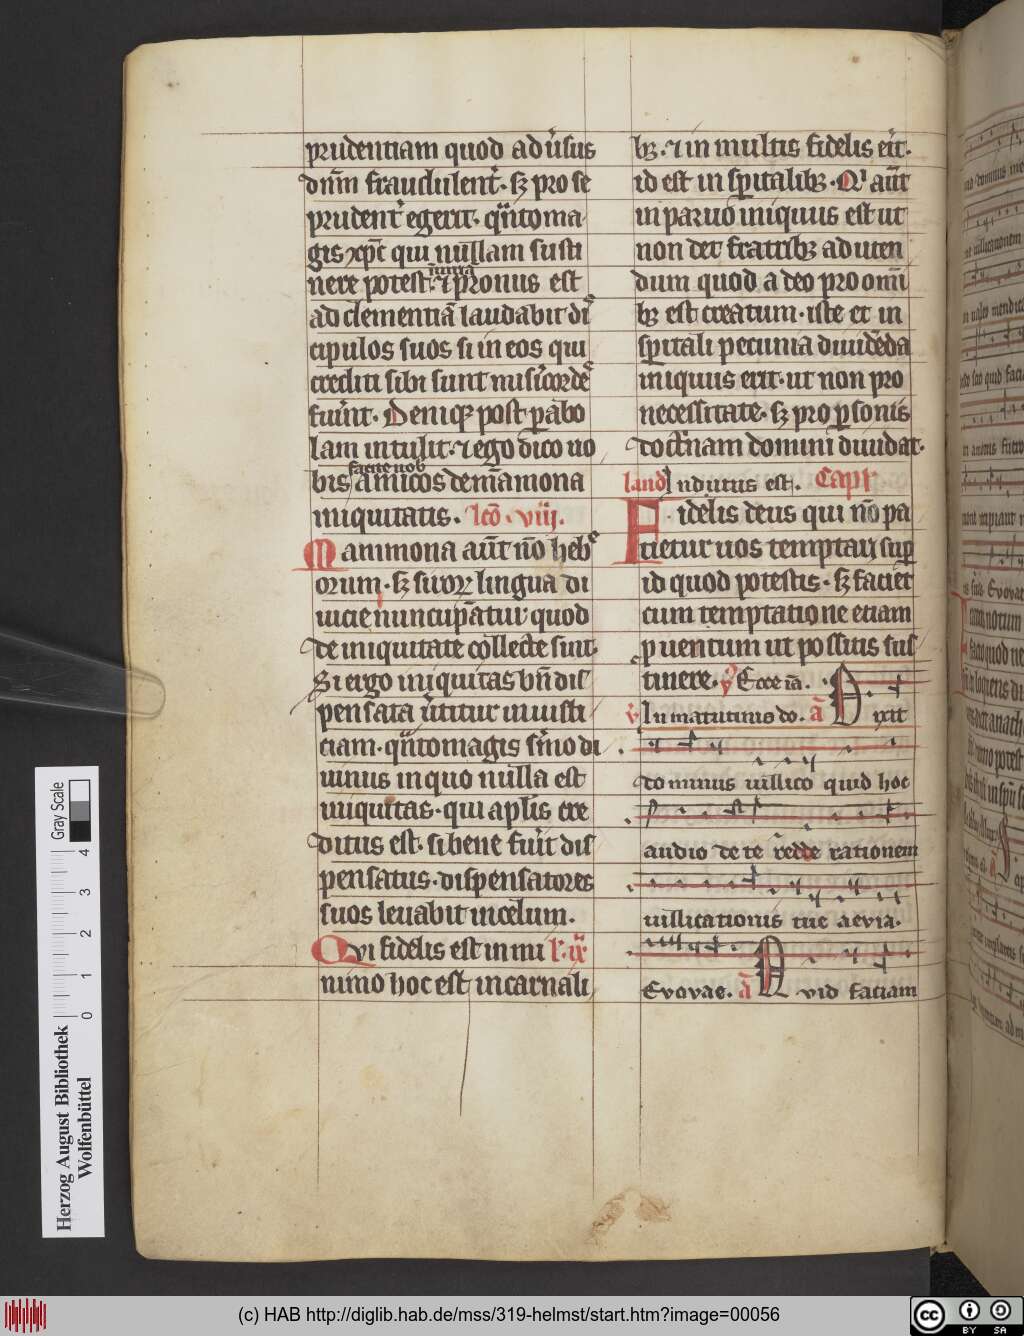 prudentiam quod adu̕sus
dnm̄ fraudulent̕. sꝫ pro se
prudent̕ egerit. qn̄to ma
gis xp̄c qui nullam susti
nere potest. iniuria ⁊ pronus est
ad clementiā laudabit di
cipulos suos si in eos qui
crediti sibi sunt mis̕icorde
fuerīt. Deniqꝫ post parabo
lam intulit. ⁊ ego dico uo
bis facite uob amicos de māmona
iniquitatis. Lc̄o. viij.
Mammona aūt nō heb̕e
orum. sꝫ siroꝝ lingua di
uicie nuncupātur quod
de iniquitate collecte sint.
Si ergo iniquitas bn̄ dis
pensata u̕titur in iusti
ciam. qn̄to magis s̕mo di
uinus in quo nulla est
iniquitas. qui aplīs cre
ditus est. si bene fu̕it dis
pensatus. dispensatores
suos leuabit in celum.
Qvi fidelis est in mi l. ix
nimo hoc est in carnali
bꝫ. ⁊ in multis fidelis er̄it.
id est in sp̄italibꝫ. Q̕ aūt
in paruo iniquus est ut
non det fratribꝫ ad uten
dum quod a deo pro omī
bꝫ est creatum. iste et in
sp̄itali pecunia diuidēda
iniquus erit. ut non pro
necessitate. sꝫ pro ꝑsonis
doct̕nam domini diuidat.
land Indutus est. Capl̕
Fidelis deus qui nō pa
tietur uos temptari suꝑ
id quod potestis. sꝫ faciet
cum temptatione etiam
ꝓuentum ut possitis sus
tinere. ℣ Ecce iā. Dixit
℣ In matutinis do. a̅
dominus uillico quid hoc
audio de te redde rationem
uillicationis tue aevia.
Evovae. a̅ Qvid faciam
Gray Scale
0 1 2 3 4
Herzog August Bibliothek
Wolfenbüttel
(c) HAB http://diglib.hab.de/mss/319-helmst/start.htm?image=00056
cc BY SA